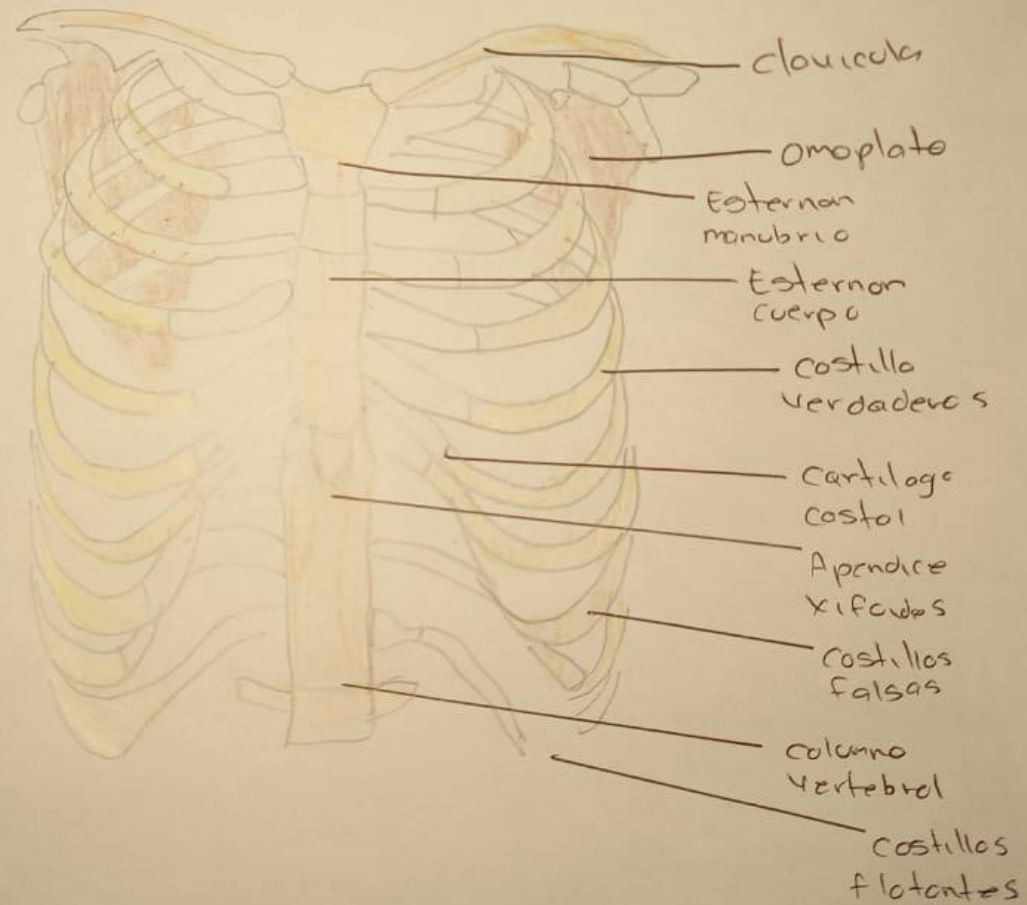 clavicula
omoplato
Esternon
manubrio
Esternon
cuerpo
costilla
verdaderas
cartilago
costal
Apendice
xifoides
costillas
falsas
columna
vertebral
costillas
flotantes